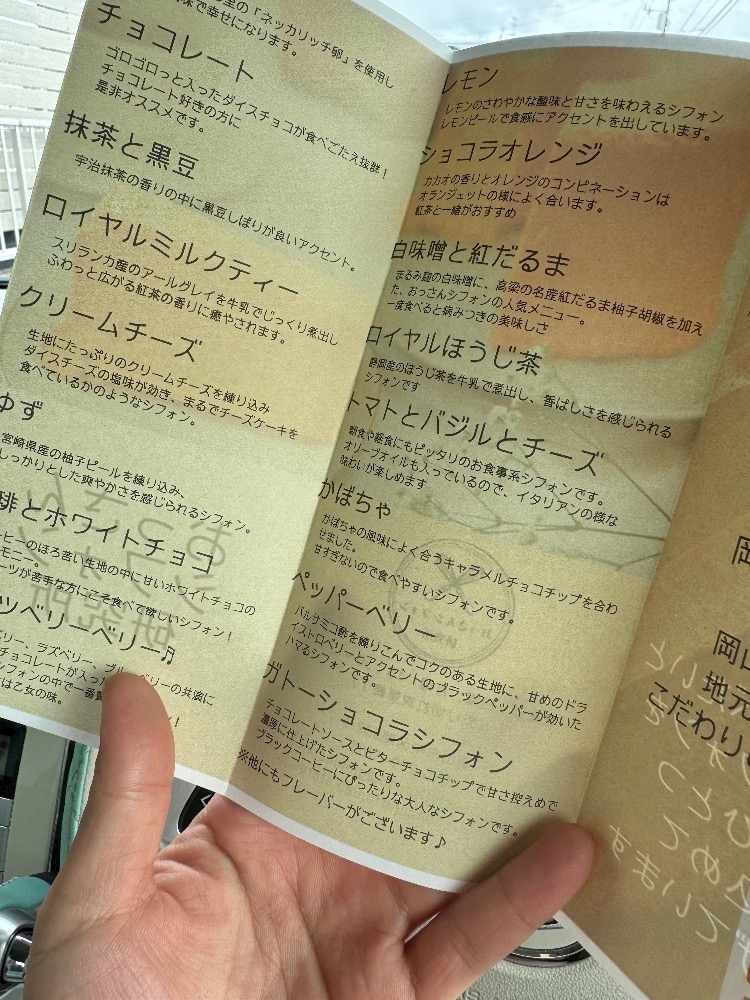 の「ネッカリッチ卵」を使用し
味で幸せになります。
チョコレート
ゴロゴロっと入ったダイスチョコが食べごたえ抜群！
チョコレート好きの方に
是非オススメです。
抹茶と黒豆
宇治抹茶の香りの中に黒豆しぼりが良いアクセント。
ロイヤルミルクティー
スリランカ産のアールグレイを牛乳でじっくり煮出し
ふわっと広がる紅茶の香りに癒やされます。
クリームチーズ
生地にたっぷりのクリームチーズを練り込み
ダイスチーズの塩味が効き、まるでチーズケーキを
食べているかのようなシフォン。
ゆず
宮崎県産の柚子ピールを練り込み、
しっかりとした爽やかさを感じられるシフォン。
琲とホワイトチョコ
ーヒーのほろ苦い生地の中に甘いホワイトチョコの
モニー。
ーツが苦手な方にこそ食べて欲しいシフォン！
ツベリーベリー♬
ベリー、ラズベリー、ブルーベリーの共演に
チョコレートが入っ
シフォンの中で一番
は乙女の味。
レモン
レモンのさわやかな酸味と甘さを味わえるシフォン
レモンピールで食感にアクセントを出しています。
ショコラオレンジ
カカオの香りとオレンジのコンビネーションは
オランジェットの様によく合います。
紅茶と一緒がおすすめ
白味噌と紅だるま
まるみ麹の白味噌に、高梁の名産紅だるま柚子胡椒を加え
た、おっさんシフォンの人気メニュー。
一度食べると病みつきの美味しさ
ロイヤルほうじ茶
静岡産のほうじ茶を牛乳で煮出し、香ばしさを感じられる
シフォンです
トマトとバジルとチーズ
朝食や軽食にもピッタリのお食事系シフォンです。
オリーブオイルも入っているので、イタリアンの様な
味わいが楽しめます
かぼちゃ
かぼちゃの風味によく合うキャラメルチョコチップを合わ
せました。
甘すぎないので食べやすいシフォンです。
ペッパーベリー
バルサミコ酢を練りこんでコクのある生地に、甘めのドラ
イストロベリーとアクセントのブラックペッパーが効いた
ハマるシフォンです。
ガトーショコラシフォン
チョコレートソースとビターチョコチップで甘さ控えめで
濃厚に仕上げたシフォンです。
ブラックコーヒーにぴったりな大人なシフォンです。
※他にもフレーバーがございます♪
岡山
地元
こだわり